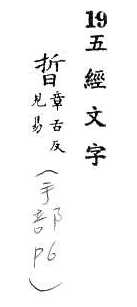 19五經文字
晢章舌反
見易
(手部P6)